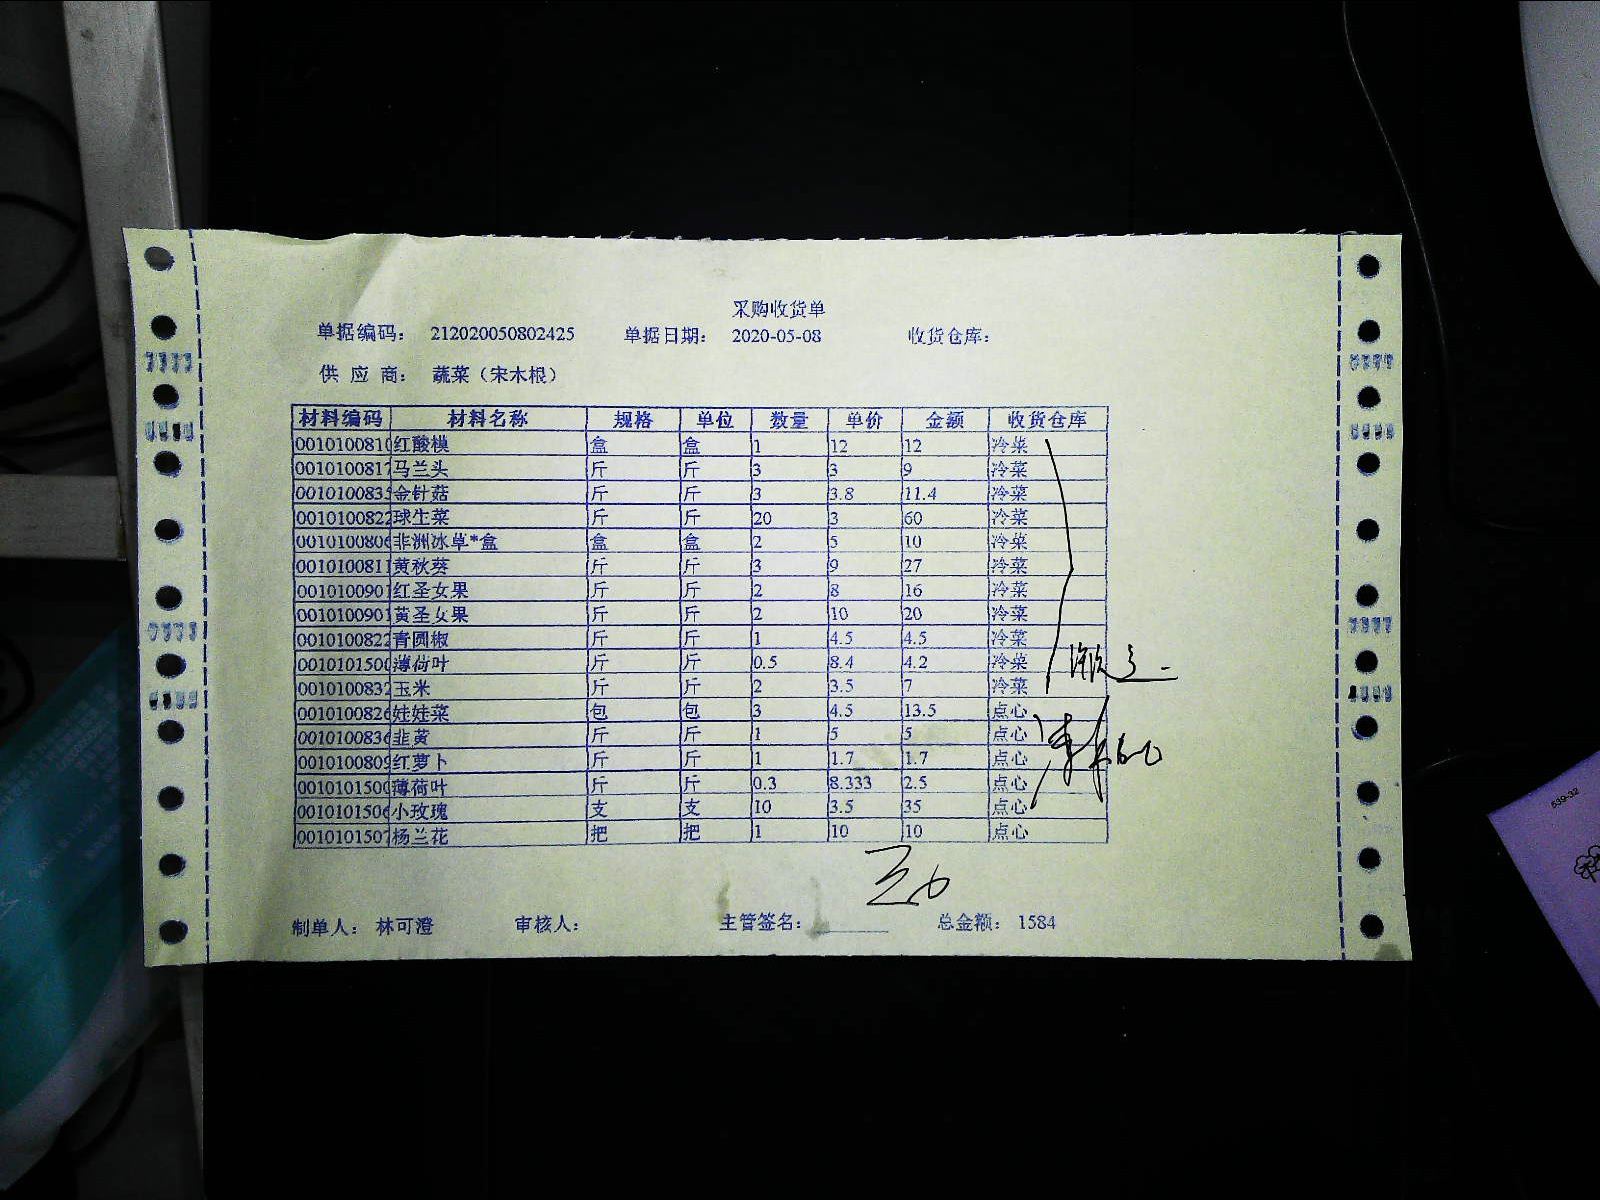 采购收货单
单据编码： 212020050802425 单据日期： 2020-05-08 收货仓库：
供 应 商： 蔬菜（宋木根）
材料编码 材料名称 规格 单位 数量 单价 金额 收货仓库
0010100810 红酸模 盒 盒 1 12 12 冷菜
0010100817 马兰头 斤 斤 3 3 9 冷菜
0010100835 金针菇 斤 斤 3 3.8 11.4 冷菜
0010100822 球生菜 斤 斤 20 3 60 冷菜
0010100806 非洲冰草*盒 盒 盒 2 5 10 冷菜
0010100811 黄秋葵 斤 斤 3 9 27 冷菜
0010100901 红圣女果 斤 斤 2 8 16 冷菜
0010100901 黄圣女果 斤 斤 2 10 20 冷菜
0010100822 青圆椒 斤 斤 1 4.5 4.5 冷菜
0010101500 薄荷叶 斤 斤 0.5 8.4 4.2 冷菜
0010100832 玉米 斤 斤 2 3.5 7 冷菜
0010100826 娃娃菜 包 包 3 4.5 13.5 点心
0010100836 韭黄 斤 斤 1 5 5 点心
0010100809 红萝卜 斤 斤 1 1.7 1.7 点心
0010101500 薄荷叶 斤 斤 0.3 8.333 2.5 点心
0010101506 小玫瑰 支 支 10 3.5 35 点心
0010101507 杨兰花 把 把 1 10 10 点心
制单人： 林可澄 审核人： 主管签名： 总金额： 1584
539-32